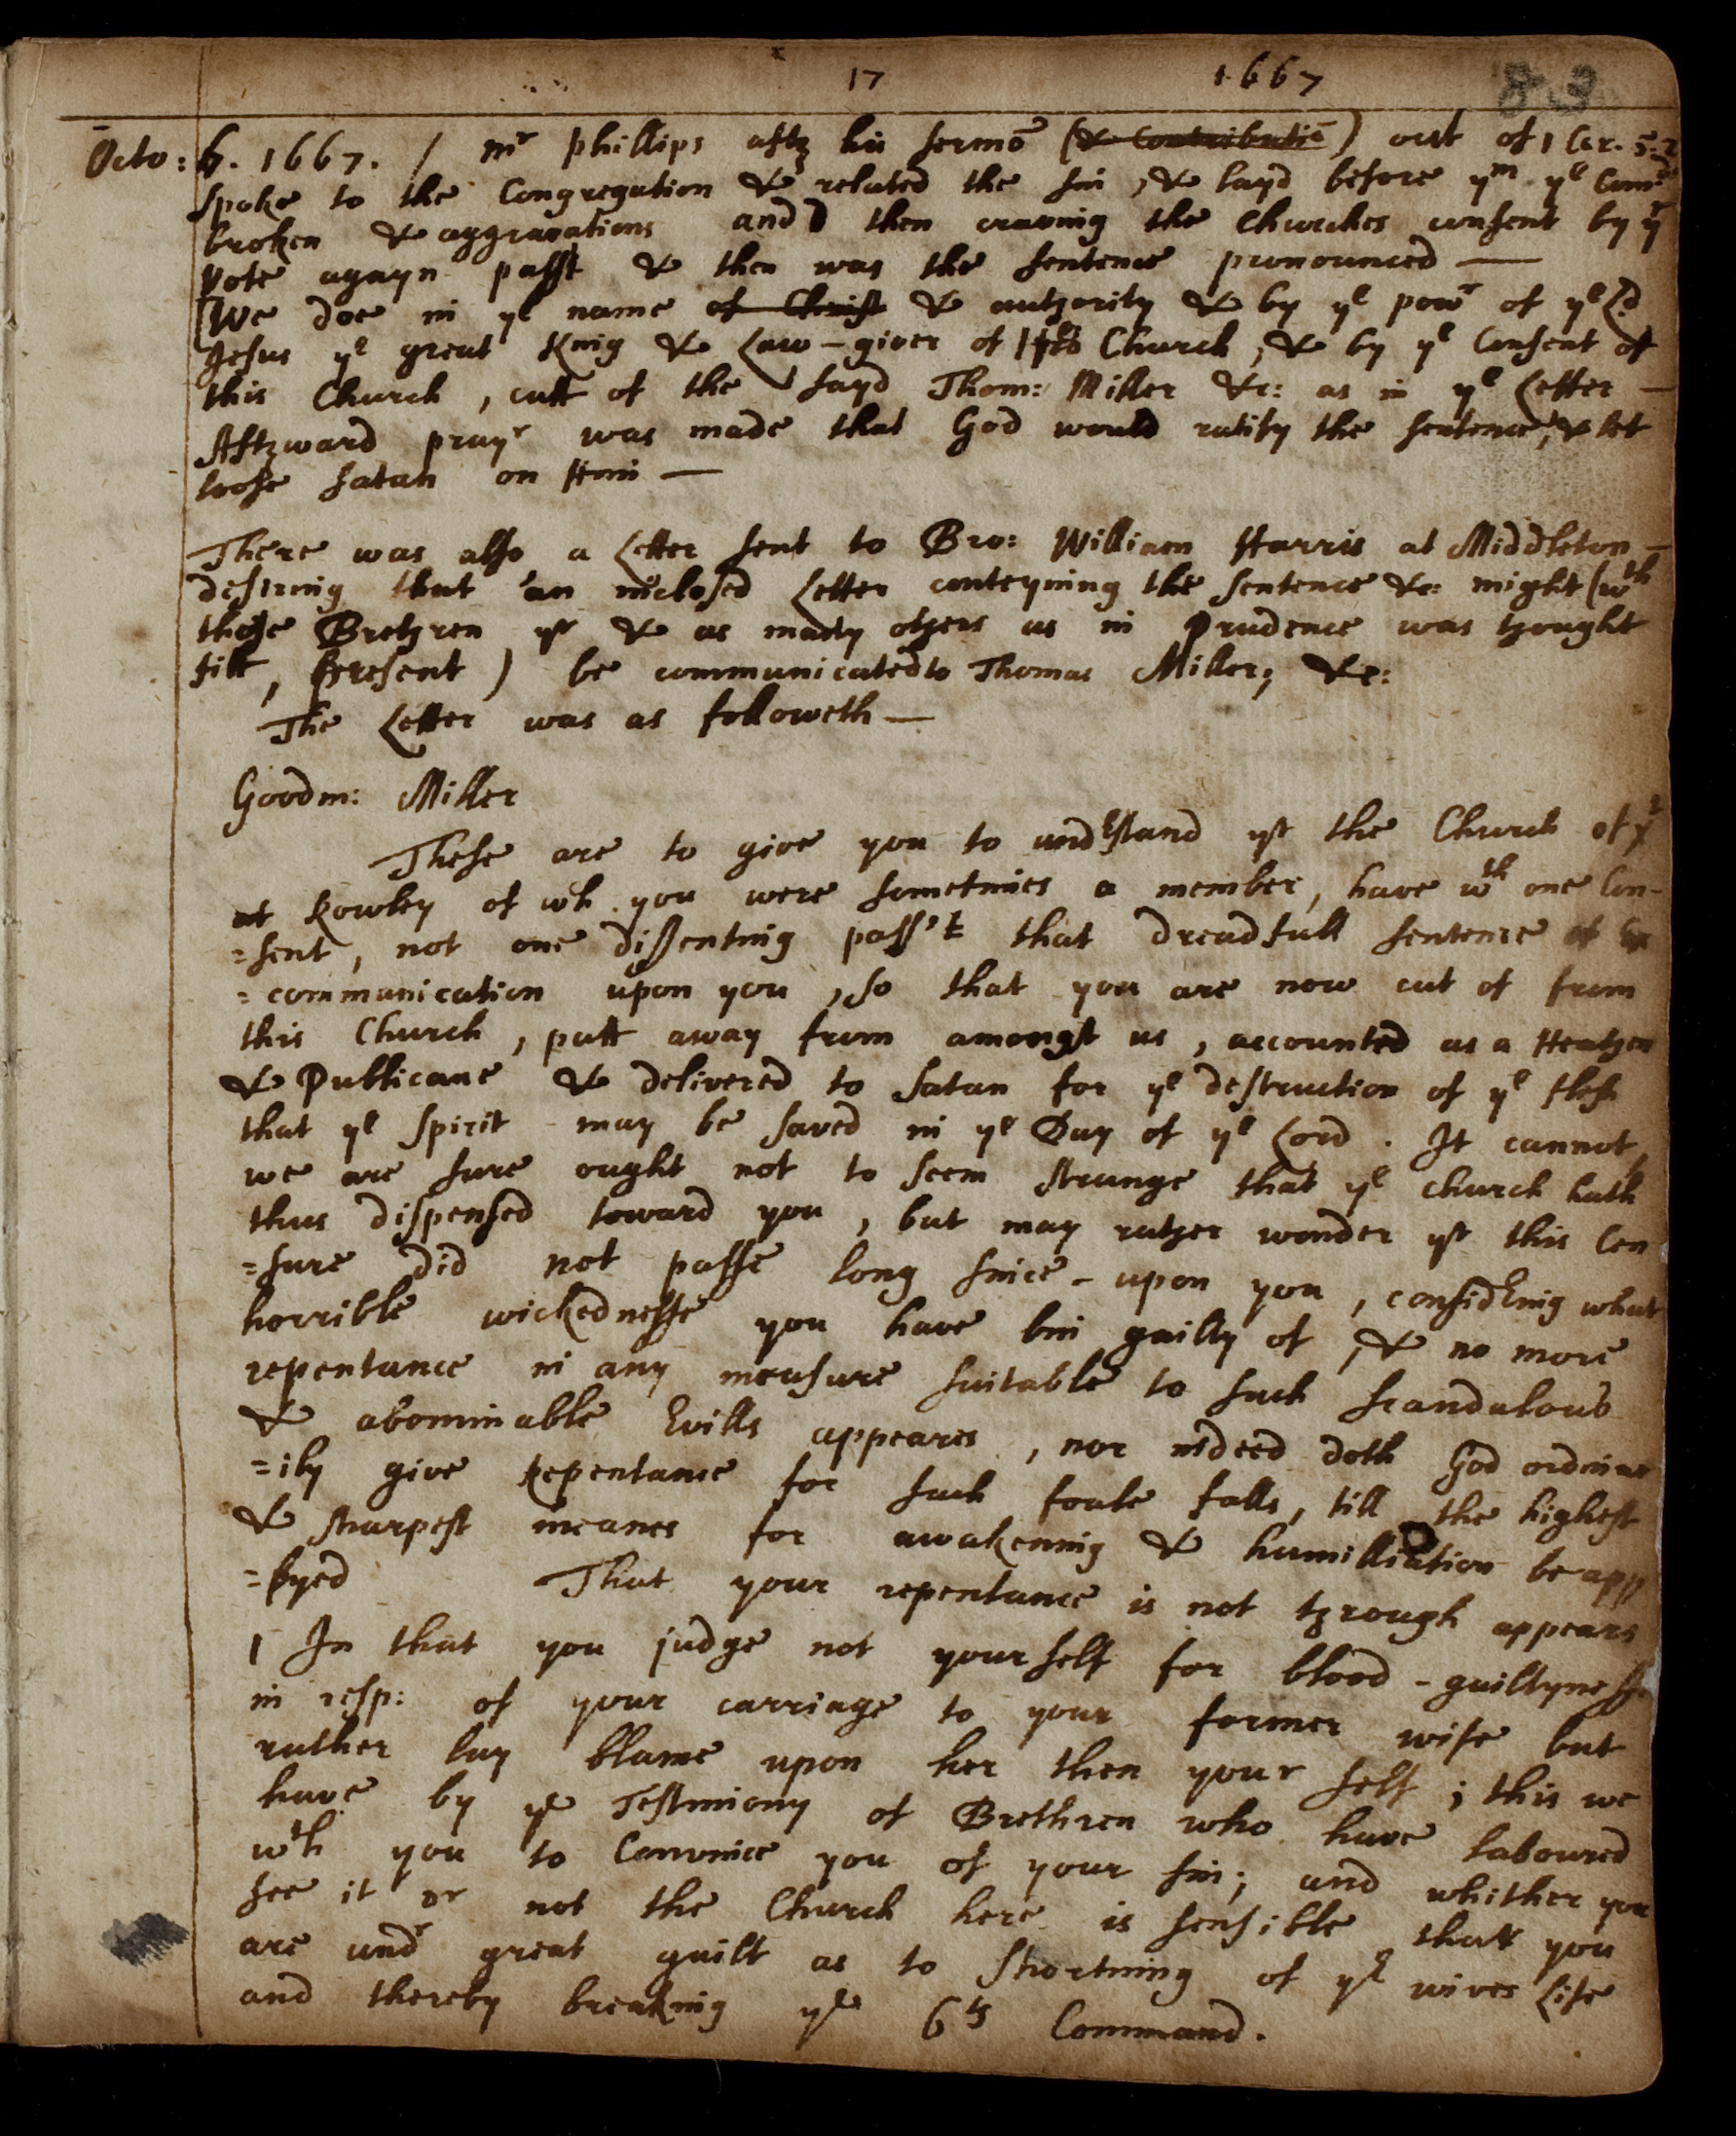 17 1667 83
Octo: 6. 1667. / mr phillips aftr his sermō (& Contributiō) out of 1 Cor. 5.
spoke to the Congregation & related the sin, & layd before ym ye Comd
broken & aggravations and then craving the Churches consent by yr
vote agayn passt & then was the sentence pronounced —
[We doe in ye name of Christ & authority & by ye powr of ye Ld
Jesus ye great King & Law-giver of His Church, & by ye Consent of
this Church, cutt of the sayd Thom: Miller &c: as in ye Letter —
Aftrward prayr was made that God would ratify the sentence, & let
loose satan on Him —
There was also a Letter sent to Bro: William Harris at Middleton —
desiring that an inclosed Letter conteyning the sentence &c: might (wth
those Brethren yr & as many others as in Prudence was thought
fitt, present) be communicated to Thomas Miller; &c:
The Letter was as followeth —
Goodm: Miller
These are to give you to undrstand yt the Church of X
at Rowley of wh you were sometimes a member, have wth one Con-
=sent, not one dissenting pass't that dreadfull sentence of Ex
=communication upon you, so that you are now cut of from
this Church, putt away from amongst us, accounted as a Heathen
& Publicane & delivered to satan for ye destruction of ye flesh
that ye spirit may be saved in ye Day of ye Lord. It cannot,
we are sure ought not to seem strange that ye church hath
thus dispensed toward you, but may rather wonder yt this Cen
=sure did not passe long since - upon you, considring what
horrible wickednesse you have bin guilty of, & no more
repentance in any measure suitable to such scandalous
& abominable Evills appeares, nor indeed doth God ordinar
=ily give repentance for such foule falls, till the highest
& sharpest meanes for awakening & humilliation be app
=lyed That your repentance is not through appears
1 In that you judge not your self for blood-guiltynesse
in resp: of your carriage to your former wife but
rather lay blame upon her then your self; this we
have by ye Testimony of Brethren who have laboured
wth you to Convince you of your sin; and whither you
see it or not the Church here is sensible that you
are undr great guilt as to shortning of yr wives life
and thereby breaking ye 6th Command.